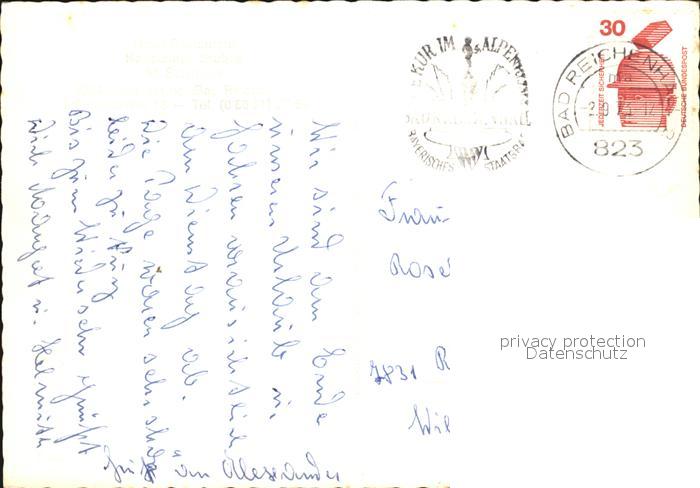 KUR IM ALPENKLIMA
BAYERISCHES STAATSBAD
30
JEDERZEIT SICHERHEIT
DEUTSCHE BUNDESPOST
BAD REICHENHALL
823
Wir sind am Ende
unseres Urlaub u.
fahren voraussichtlich
am Dienstag ab.
Die Tage waren sehr schön
leider zu kurz
Bis zum Wiedersehn grüßt
Dich Margret u. Helmut
Gruß an Alexander
Frau
Rosé
7831 R
Wil
privacy protection
Datenschutz